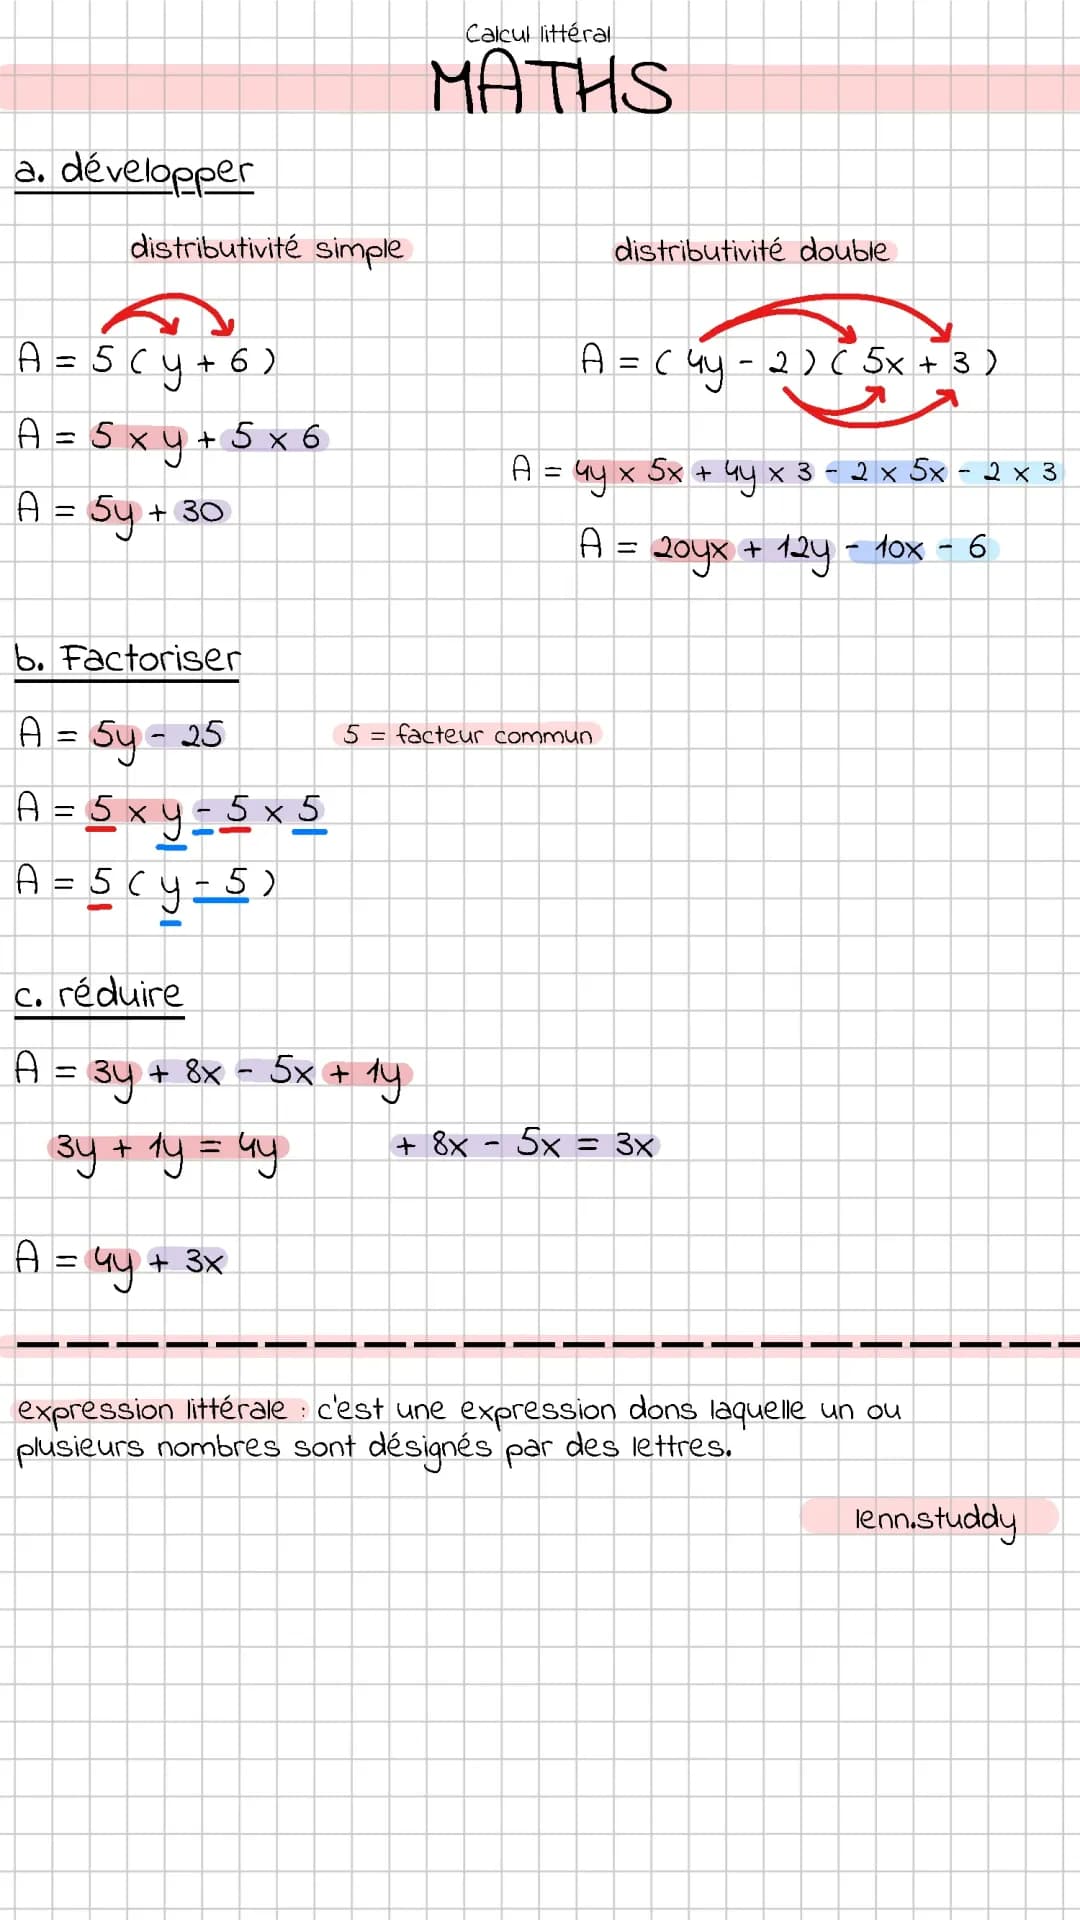 Calcul littéral
MATHS
a. développer
distributivité simple
A = 5 ( y + 6 )
A = 5 × y + 5 × 6
A = 5y + 30
distributivité double
A = ( 4y - 2 ) ( 5x + 3 )
A = 4y × 5x + 4y × 3 - 2 × 5x - 2 × 3
A = 20yx + 12y - 10x - 6
b. Factoriser
A = 5y - 25
5 = facteur commun
A = 5 × y - 5 × 5
A = 5 ( y - 5 )
c. réduire
A = 3y + 8x - 5x + 1y
3y + 1y = 4y
+ 8x - 5x = 3x
A = 4y + 3x
expression littérale : c'est une expression dons laquelle un ou
plusieurs nombres sont désignés par des lettres.
lenn.studdy